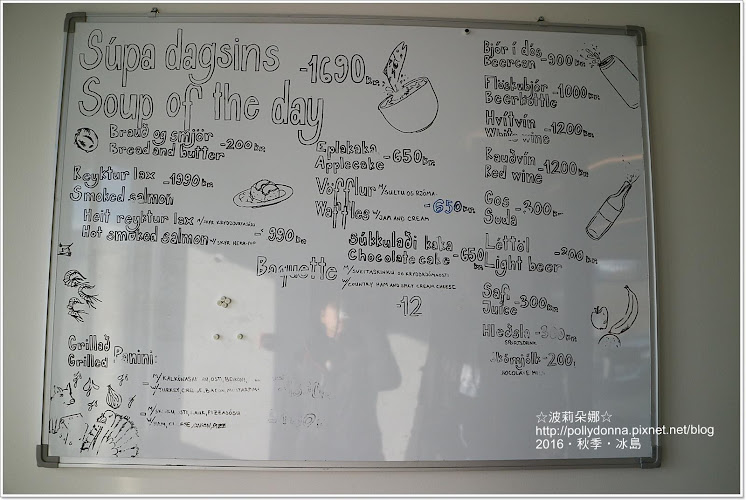 Súpa dagsins
Soup of the day
-1690 kr.
Brauð og smjör
Bread and butter
-200 kr
Reyktur lax
Smoked salmon
-1990 kr
Heit reyktur lax
Hot smoked salmon
990 kr
Eplakaka
Applecake
-650 kr
Vöfflur M/SULTU OG RJÓMA
Waffles W/JAM AND CREAM
-650 kr
Súkkulaði kaka
Chocolate cake
-650 kr
Baguette
M/SVEITASKINKU OG KRYDDRJÓMAOSTI
W/COUNTRY HAM AND CREAM CHEESE
-12
Grillað
Grilled
Panini:
Bjór í dós
Beercan
-900 kr
Flöskubjór
Beerbottle
-1000 kr
Hvítvín
White wine
-1200 kr
Rauðvín
Red wine
-1200 kr
Gos
Soda
-300 kr
Léttöl
Light beer
-300 kr
Safi
Juice
-300 kr
Hleðsla
-200
☆波莉朵娜☆
http://pollydonna.pixnet.net/blog
2016‧秋季‧冰島